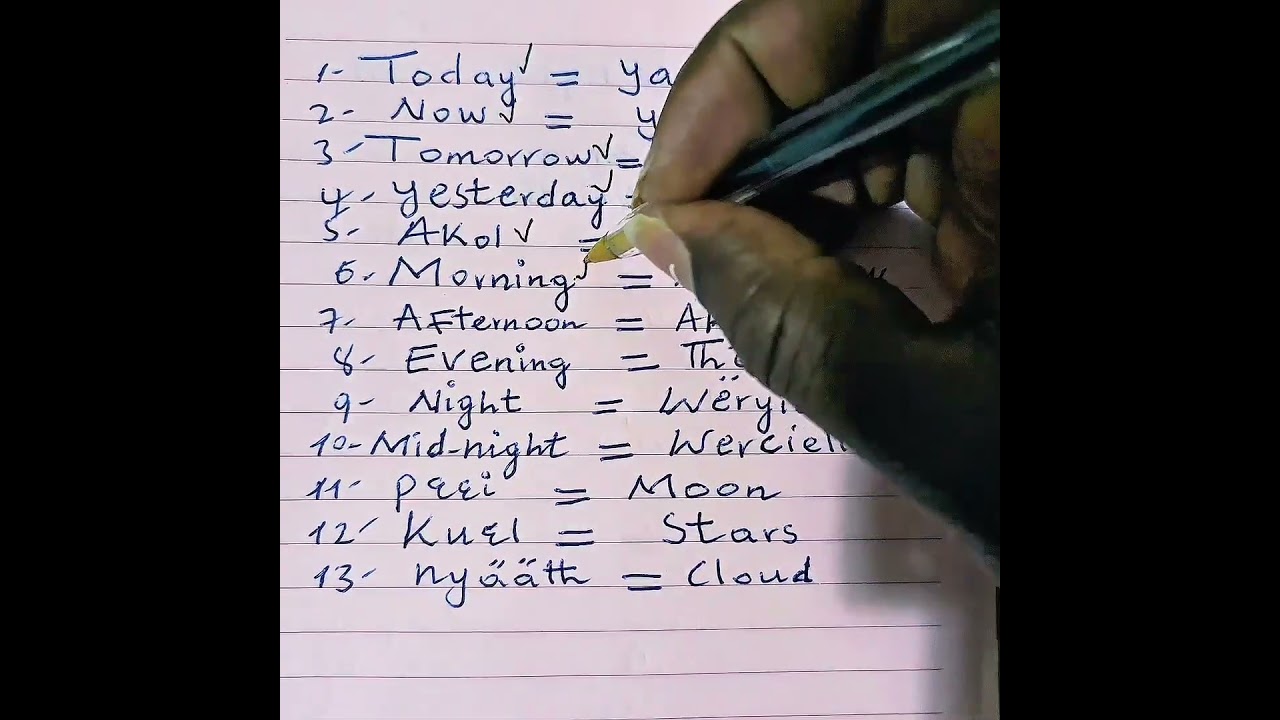 1- Today ✓ = ya
2- Now ✓ = y
3- Tomorrow ✓ =
4- Yesterday ✓ =
5- Akol ✓ =
6- Morning ✓ =
7- Afternoon =
8- Evening =
9- Night =
10- Mid-night =
11- pɛɛi = Moon
12- Kuɛl = Stars
13- nyääth = Cloud